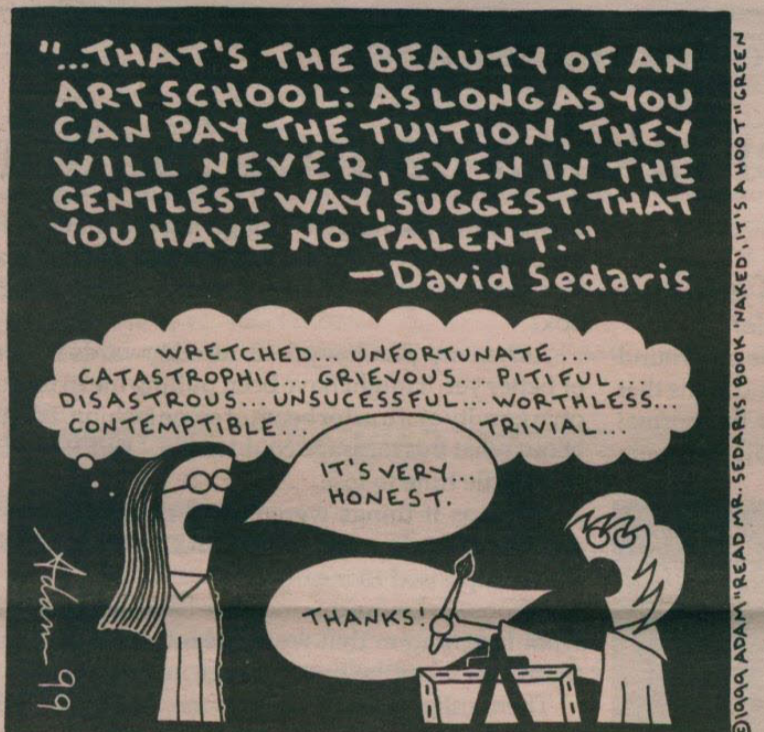 "...THAT'S THE BEAUTY OF AN
ART SCHOOL: AS LONG AS YOU
CAN PAY THE TUITION, THEY
WILL NEVER, EVEN IN THE
GENTLEST WAY, SUGGEST THAT
YOU HAVE NO TALENT."
—David Sedaris
WRETCHED... UNFORTUNATE...
CATASTROPHIC... GRIEVOUS... PITIFUL...
DISASTROUS... UNSUCESSFUL... WORTHLESS...
CONTEMPTIBLE... TRIVIAL...
IT'S VERY...
HONEST.
THANKS!
Adam 99
©1999 ADAM "READ MR. SEDARIS' BOOK 'NAKED', IT'S A HOOT" GREEN